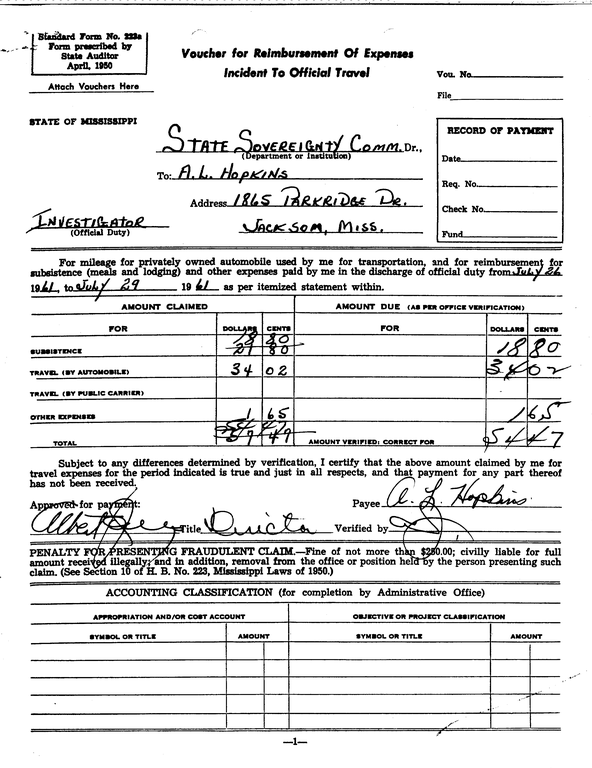 Standard Form No. 223a
Form prescribed by
State Auditor
April, 1950
Attach Vouchers Here
Voucher for Reimbursement Of Expenses
Incident To Official Travel
Vou. No.
File
STATE OF MISSISSIPPI
STATE SOVEREIGNTY COMM. Dr.,
(Department or Institution)
To: A.L. HOPKINS
Address 1865 PARKRIDGE DR.
INVESTIGATOR
(Official Duty)
JACKSON, MISS.
RECORD OF PAYMENT
Date
Req. No.
Check No.
Fund
For mileage for privately owned automobile used by me for transportation, and for reimbursement for
subsistence (meals and lodging) and other expenses paid by me in the discharge of official duty from JULY 26
1961, to JULY 29 1961 as per itemized statement within.
AMOUNT CLAIMED AMOUNT DUE (AS PER OFFICE VERIFICATION)
FOR DOLLARS CENTS FOR DOLLARS CENTS
18 80
SUBSISTENCE 21 80 18 80
TRAVEL (BY AUTOMOBILE) 34 02 34 02
TRAVEL (BY PUBLIC CARRIER)
OTHER EXPENSES 1 65 1 65
54 47
TOTAL 57 47 AMOUNT VERIFIED: CORRECT FOR 54 47
Subject to any differences determined by verification, I certify that the above amount claimed by me for
travel expenses for the period indicated is true and just in all respects, and that payment for any part thereof
has not been received.
Approved for payment: Payee A. L. Hopkins
Title Director Verified by
PENALTY FOR PRESENTING FRAUDULENT CLAIM.—Fine of not more than $250.00; civilly liable for full
amount received illegally; and in addition, removal from the office or position held by the person presenting such
claim. (See Section 10 of H. B. No. 223, Mississippi Laws of 1950.)
ACCOUNTING CLASSIFICATION (for completion by Administrative Office)
APPROPRIATION AND/OR COST ACCOUNT OBJECTIVE OR PROJECT CLASSIFICATION
SYMBOL OR TITLE AMOUNT SYMBOL OR TITLE AMOUNT
—1—